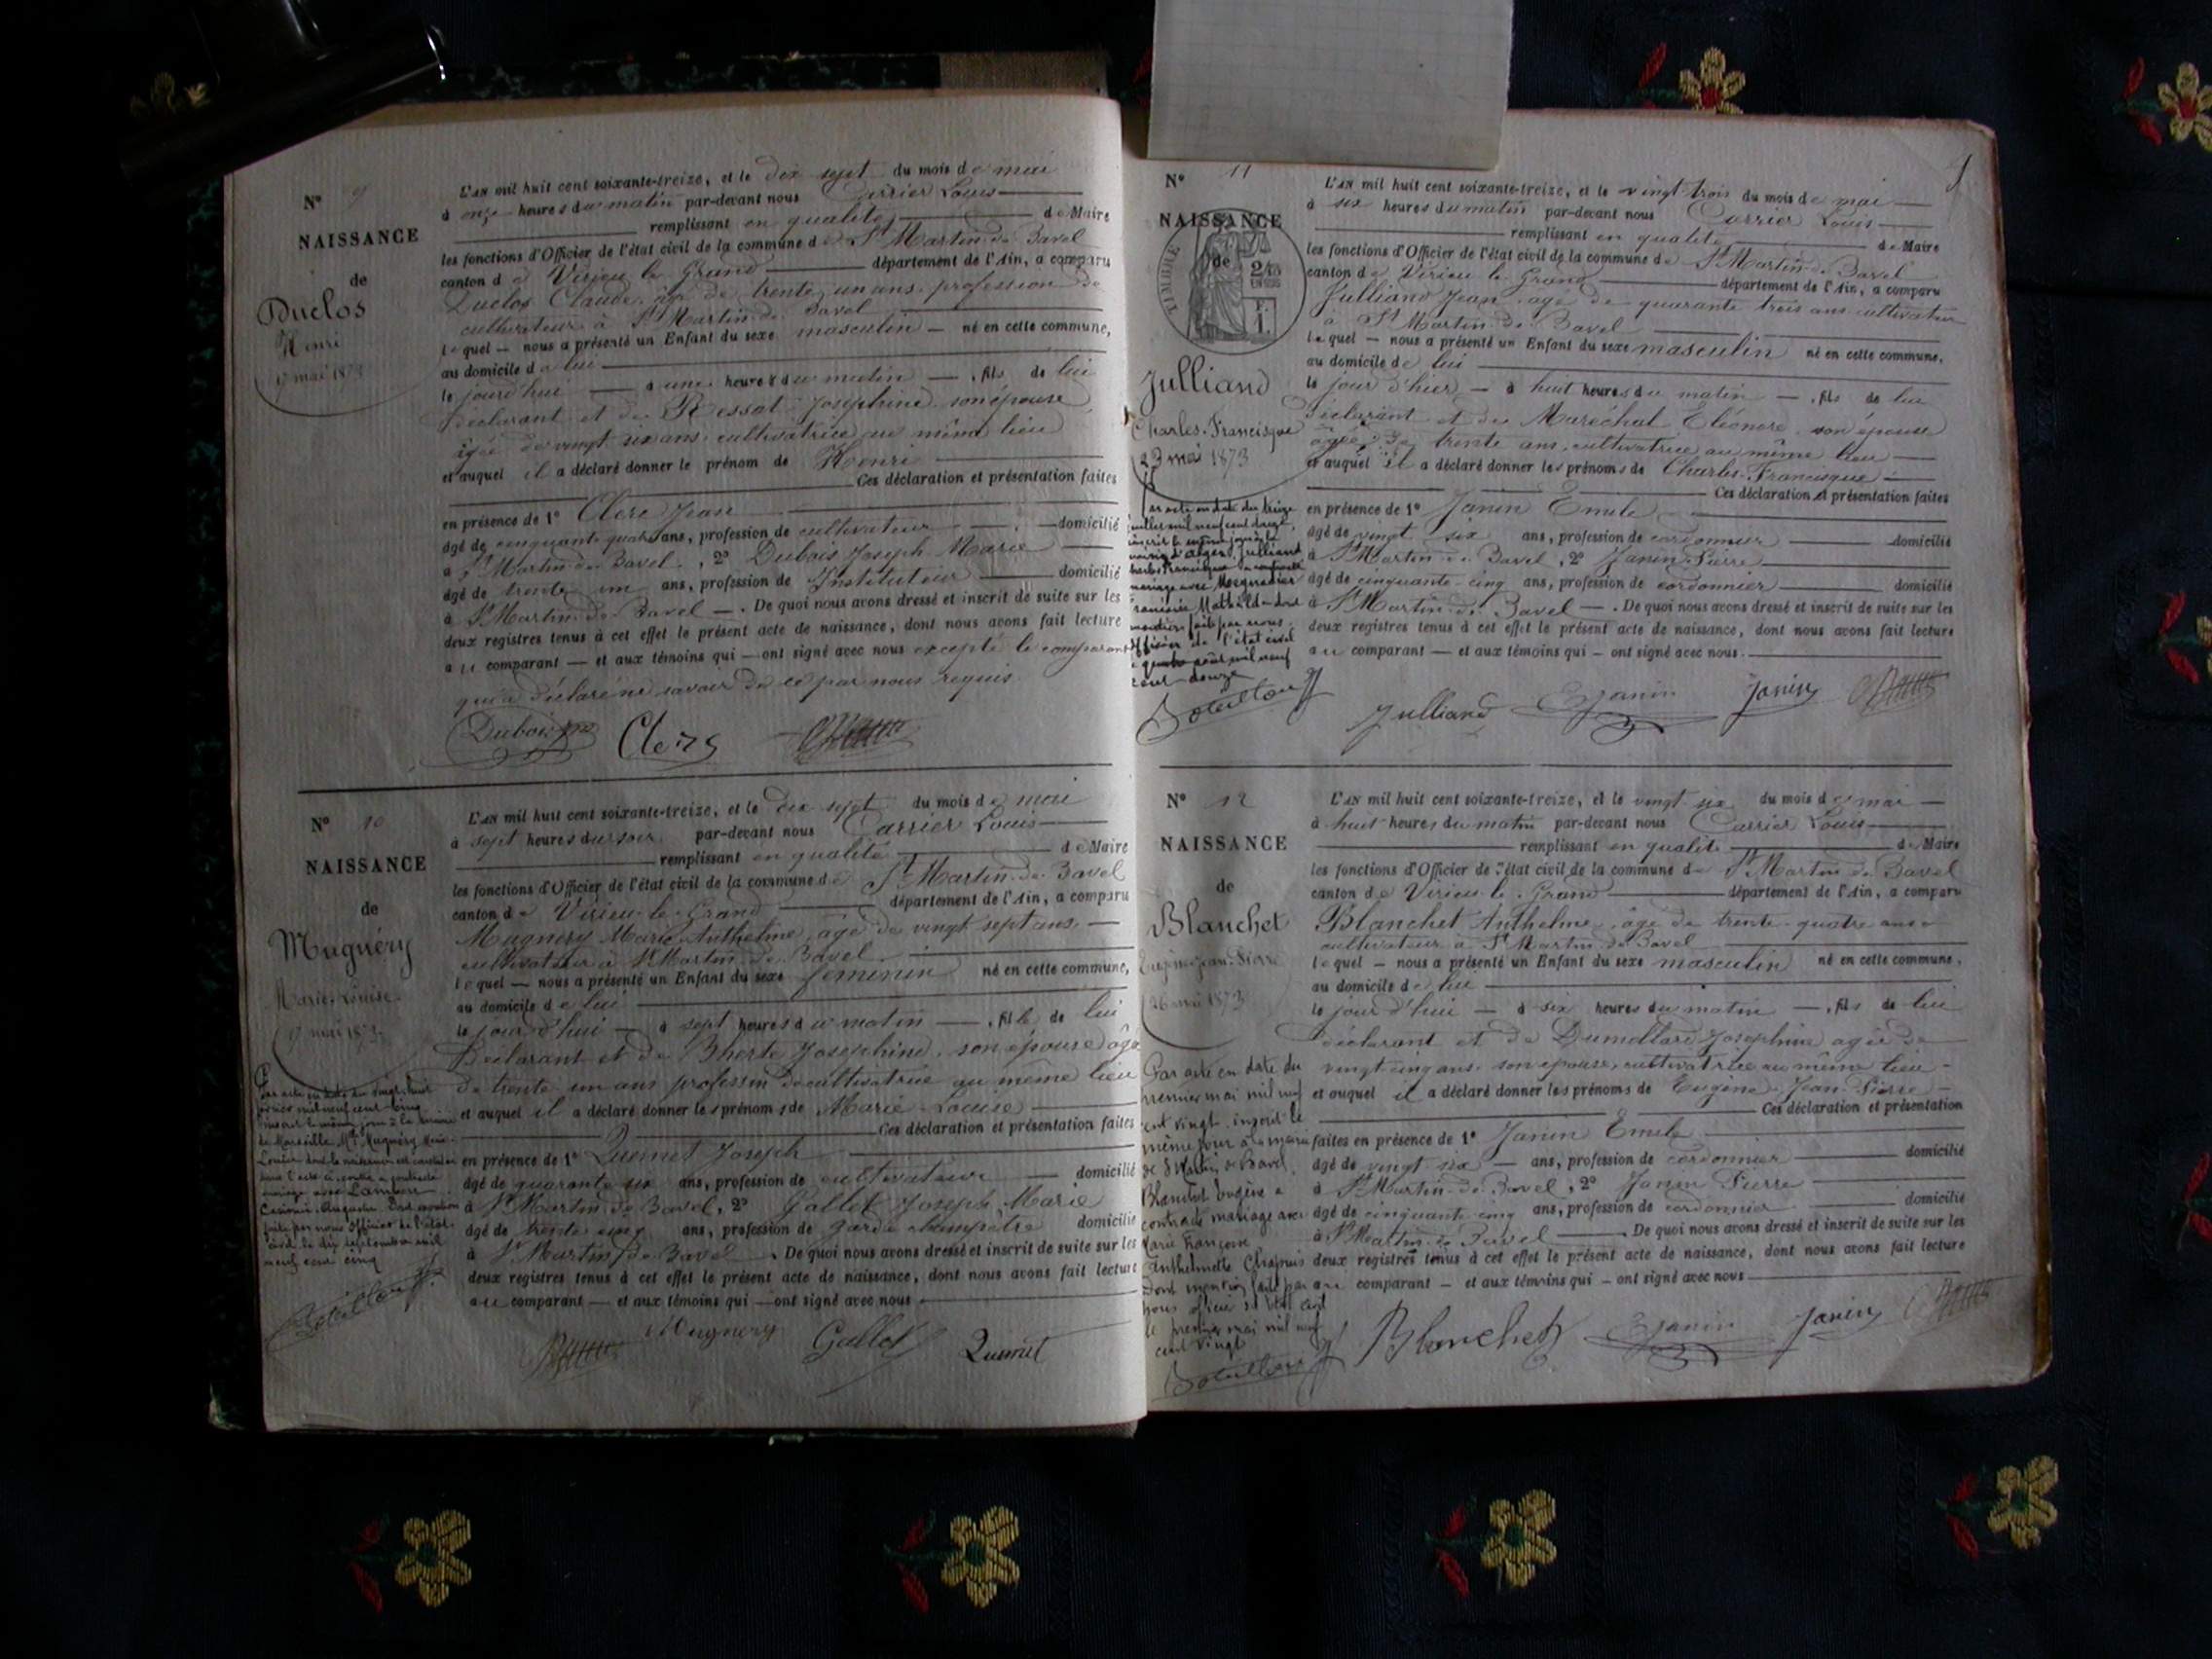 N° 9
NAISSANCE
de
Duclos
Henri
17 mai 1873
L'AN mil huit cent soixante-treize, et le dix sept du mois de mai
à onze heures du matin par-devant nous Carrier Louis
remplissant en qualité de Maire
les fonctions d'Officier de l'état civil de la commune de St Martin de Bavel
canton de Virieu le Grand département de l'Ain, a comparu
Duclos Claude, âgé de trente un ans, profession de
cultivateur à St Martin de Bavel
lequel nous a présenté un Enfant du sexe masculin né en cette commune,
au domicile de lui
le jourd'hui à une heure du matin, fils de lui
déclarant et de Ressat Joséphine son épouse
âgée de vingt six ans, cultivatrice au même lieu
et auquel il a déclaré donner le prénom de Henri
Ces déclaration et présentation faites
en présence de 1° Clerc Jean
âgé de cinquante quatre ans, profession de cultivateur domicilié
à St Martin de Bavel, 2° Dubois Joseph Marie
âgé de trente un ans, profession de Instituteur domicilié
à St Martin de Bavel. De quoi nous avons dressé et inscrit de suite sur les
deux registres tenus à cet effet le présent acte de naissance, dont nous avons fait lecture
au comparant et aux témoins qui ont signé avec nous excepté le comparant
qui a déclaré ne savoir de ce par nous requis
Dubois Clerc
N° 10
NAISSANCE
de
Mugnéry
Marie Louise
17 mai 1873
L'AN mil huit cent soixante-treize, et le dix sept du mois de mai
à sept heures du soir par-devant nous Carrier Louis
remplissant en qualité de Maire
les fonctions d'Officier de l'état civil de la commune de St Martin de Bavel
canton de Virieu le Grand département de l'Ain, a comparu
Mugnery Marie Anthelme, âgé de vingt sept ans,
cultivateur à St Martin de Bavel
lequel nous a présenté un Enfant du sexe féminin né en cette commune,
au domicile de lui
le jourd'hui à sept heures du matin, fille de lui
déclarant et de Bherte Joséphine, son épouse âgée
de trente un ans profession de cultivatrice au même lieu
et auquel il a déclaré donner les prénoms de Marie Louise
Ces déclaration et présentation faites
en présence de 1° Quemet Joseph
âgé de quarante six ans, profession de cultivateur domicilié
à St Martin de Bavel, 2° Gallet Joseph Marie
âgé de trente cinq ans, profession de garde champêtre domicilié
à St Martin de Bavel. De quoi nous avons dressé et inscrit de suite sur les
deux registres tenus à cet effet le présent acte de naissance, dont nous avons fait lecture
au comparant et aux témoins qui ont signé avec nous
Mugnery Gallet Quemet
Par acte en date du vingt huit
mil neuf cent cinq
inscrit le même jour à la mairie
de Marseille, Mlle Mugnéry Marie
Louise dont la naissance est constatée
dans l'acte ci-contre a contracté
mariage avec Lambert
Casimir Auguste. Dont mention
faite par nous Officier de l'état
civil le dix septembre mil
neuf cent cinq
N° 11
NAISSANCE
de
TIMBRE
Julliand
Charles-Francisque
23 mai 1873
L'AN mil huit cent soixante-treize, et le vingt trois du mois de mai
à six heures du matin par-devant nous Carrier Louis
remplissant en qualité de Maire
les fonctions d'Officier de l'état civil de la commune de St Martin de Bavel
canton de Virieu le Grand département de l'Ain, a comparu
Julliand Jean, âgé de quarante trois ans cultivateur
à St Martin de Bavel
lequel nous a présenté un Enfant du sexe masculin né en cette commune,
au domicile de lui
le jour d'hier à huit heures du matin, fils de lui
déclarant et de Maréchal Éléonore son épouse
âgée de trente ans, cultivatrice au même lieu
et auquel il a déclaré donner les prénoms de Charles-Francisque
Ces déclaration et présentation faites
en présence de 1° Janin Emile
âgé de vingt six ans, profession de cordonnier domicilié
à St Martin de Bavel, 2° Janin Pierre
âgé de cinquante-cinq ans, profession de cordonnier domicilié
à St Martin de Bavel. De quoi nous avons dressé et inscrit de suite sur les
deux registres tenus à cet effet le présent acte de naissance, dont nous avons fait lecture
au comparant et aux témoins qui ont signé avec nous.
Julliand E Janin Janin
Par acte en date du treize
juillet mil neuf cent douze,
inscrit le même jour à la
mairie d'Alger, Julliand
Charles Francisque a contracté
mariage avec
Mathilde dont
mention faite par nous
officier de l'état civil
août mil neuf
cent douze
N° 12
NAISSANCE
de
Blanchet
Eugène Jean-Pierre
26 mai 1873
L'AN mil huit cent soixante-treize, et le vingt six du mois de mai
à huit heures du matin par-devant nous Carrier Louis
remplissant en qualité de Maire
les fonctions d'Officier de l'état civil de la commune de St Martin de Bavel
canton de Virieu le Grand département de l'Ain, a comparu
Blanchet Anthelme, âgé de trente quatre ans
cultivateur à St Martin de Bavel
lequel nous a présenté un Enfant du sexe masculin né en cette commune,
au domicile de lui
le jourd'hui à six heures du matin, fils de lui
déclarant et de Dumollard Joséphine âgée de
vingt cinq ans son épouse, cultivatrice au même lieu
et auquel il a déclaré donner les prénoms de Eugène Jean-Pierre
Ces déclaration et présentation
faites en présence de 1° Janin Emile
âgé de vingt six ans, profession de cordonnier domicilié
à St Martin de Bavel, 2° Janin Pierre
âgé de cinquante cinq ans, profession de cordonnier domicilié
à St Martin de Bavel. De quoi nous avons dressé et inscrit de suite sur les
deux registres tenus à cet effet le présent acte de naissance, dont nous avons fait lecture
au comparant et aux témoins qui ont signé avec nous
Blanchet E Janin Janin
Par acte en date du
premier mai mil neuf
cent vingt, inscrit le
même jour à la mairie
de St Martin de Bavel,
Blanchet Eugène a
contracté mariage avec
Marie Françoise
Anthelmette Chapuis
Dont mention faite par
nous officier de l'état civil
le premier mai mil neuf
cent vingt